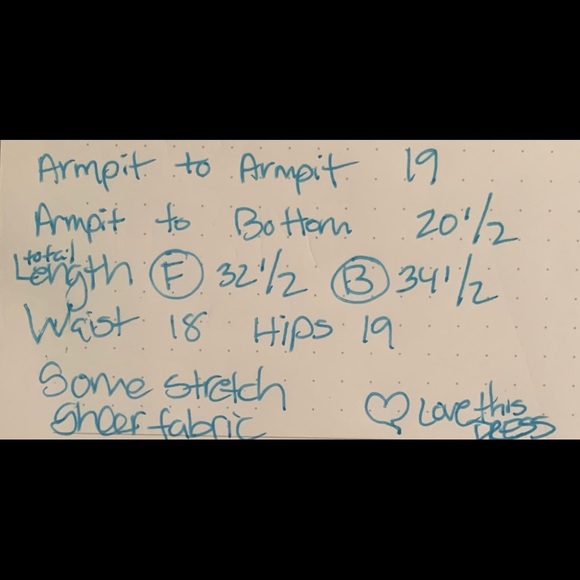 Armpit to Armpit 19
Armpit to Bottom 20 1/2
total Length F 32 1/2 B 34 1/2
Waist 18 Hips 19
Some stretch
Sheer fabric
Love this
DRESS